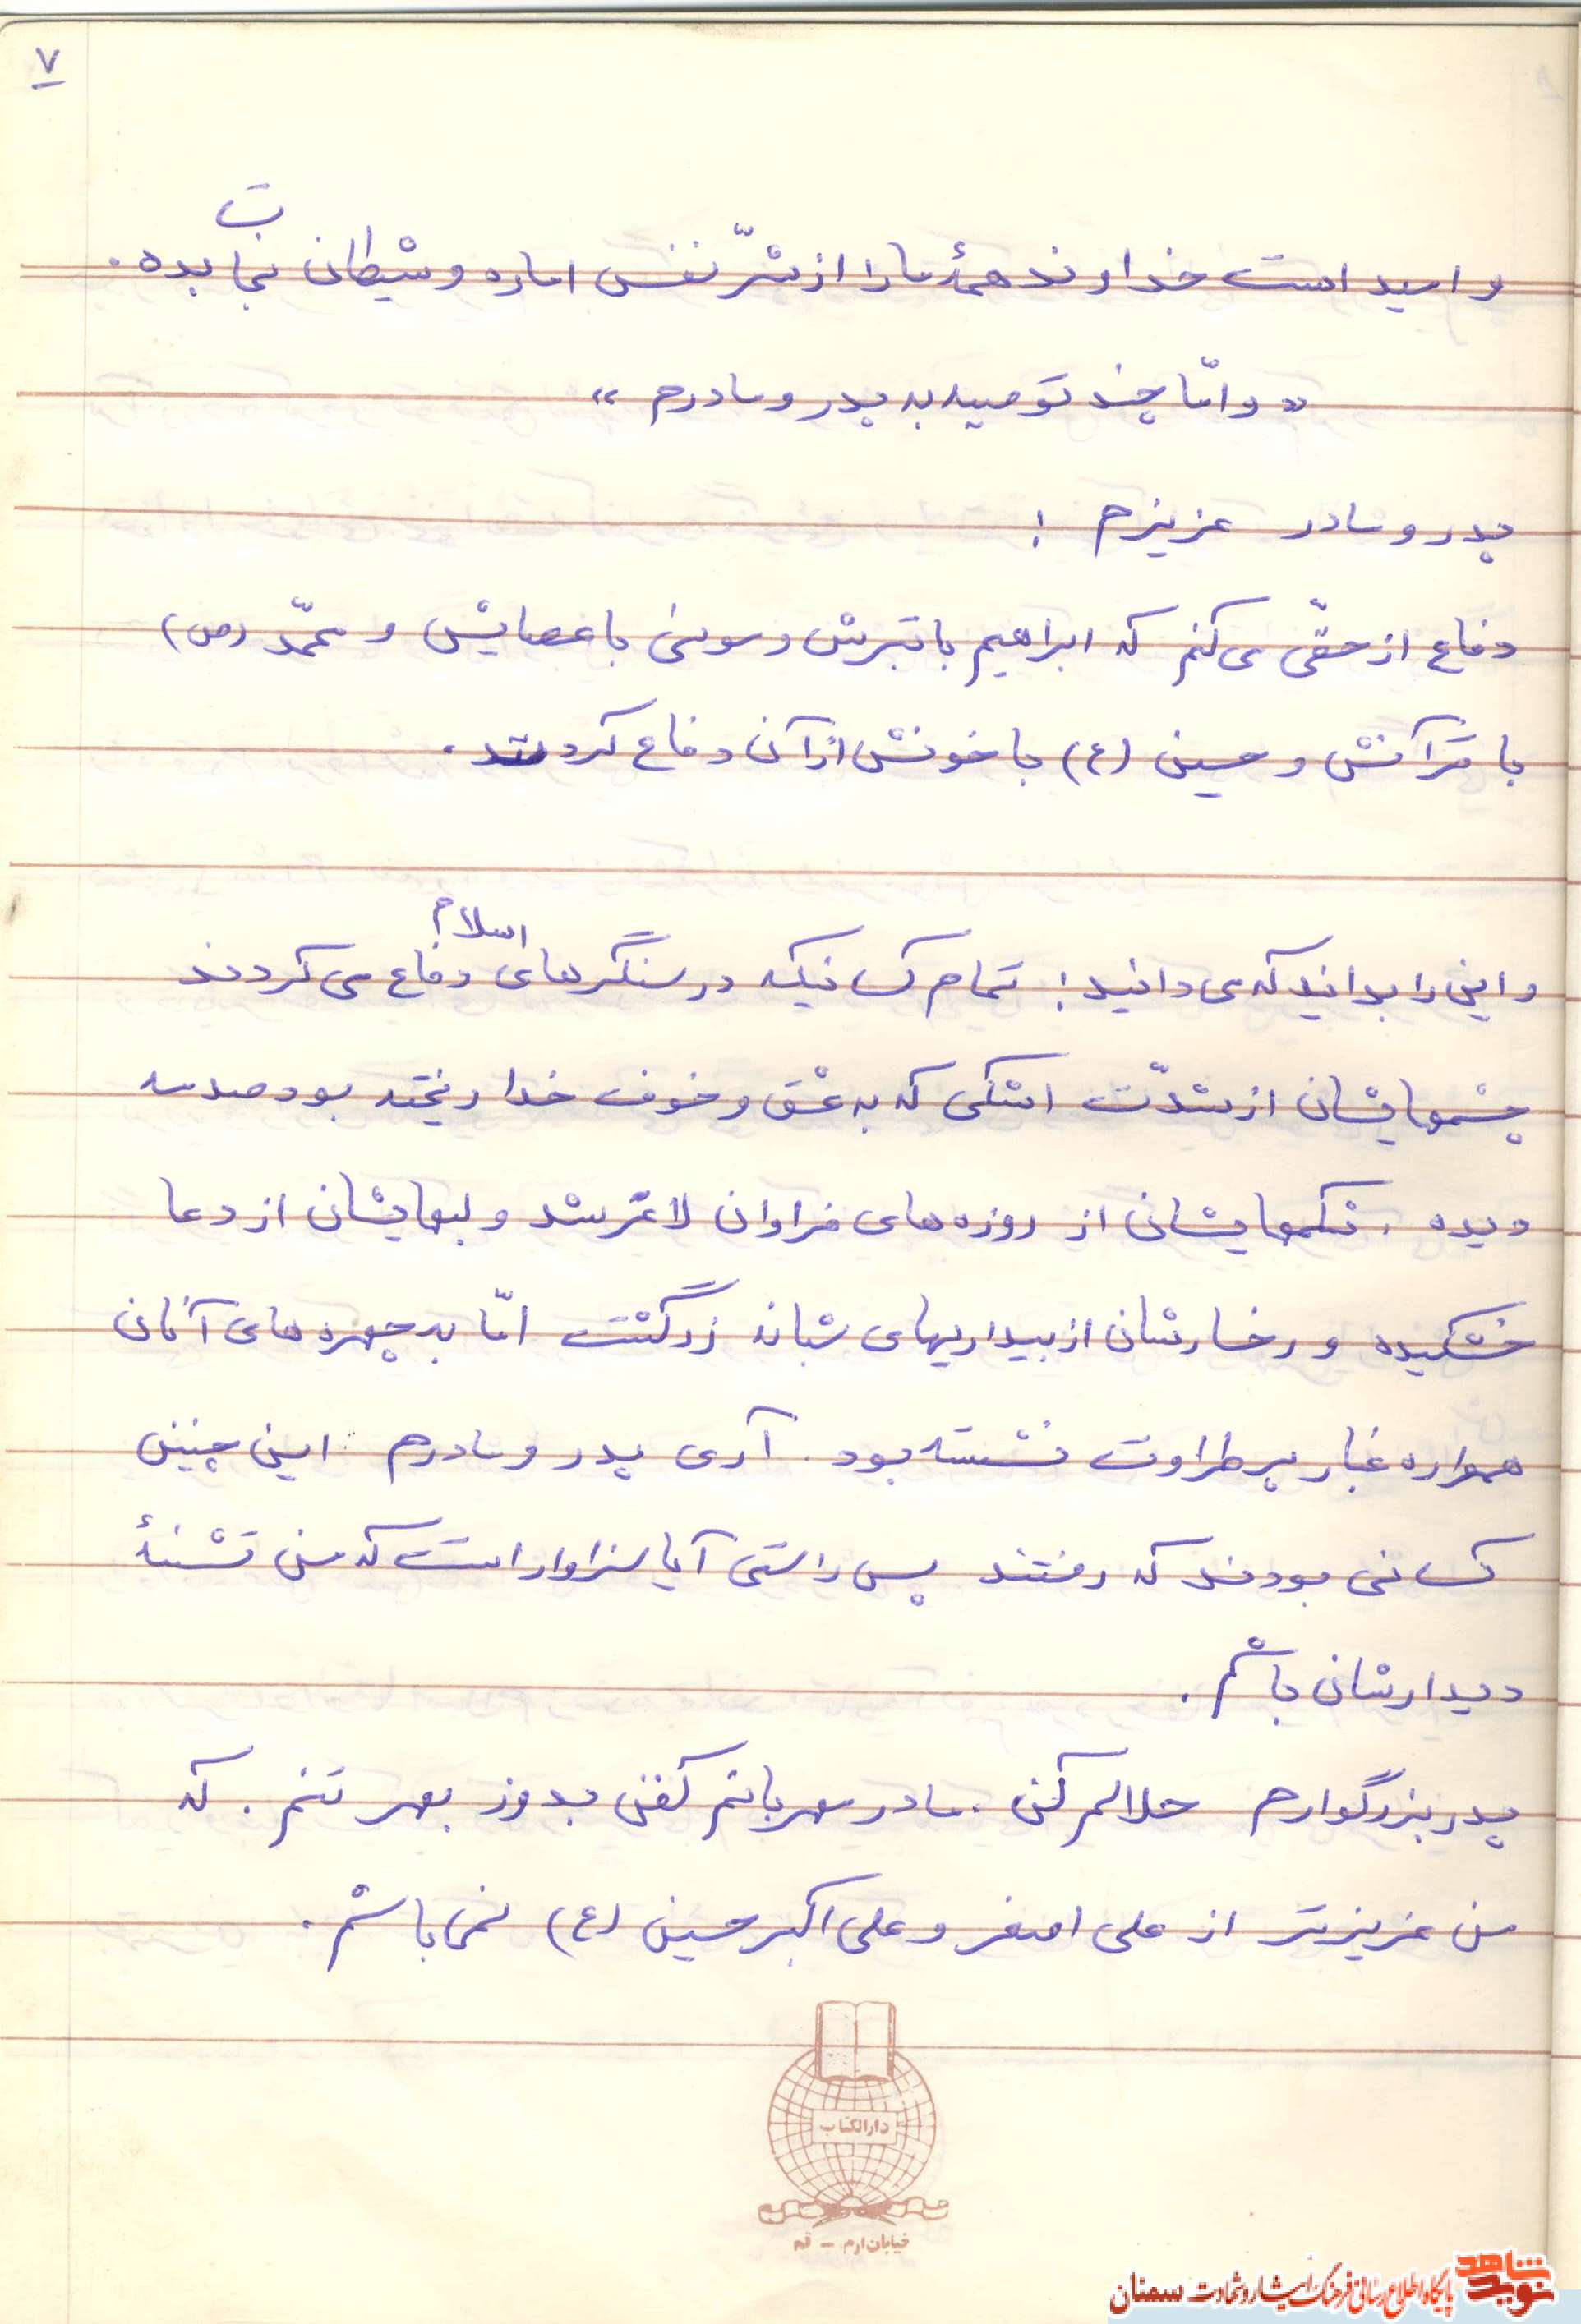 ۷
و امید است خداوند همهٔ ما را از شرّ نفس اماره و شیطان نجات بده .
« و امّا چند توصیه به پدر و مادرم »
پدر و مادر عزیزم !
دفاع از حقّی می کنم که ابراهیم با تبرش و موسی با عصایش و محمّد (ص)
با قرآنش و حسین (ع) با خونش از آن دفاع کردند .
و این را بدانید که می دانید ! تمام کسانیکه در سنگرهای اسلام دفاع می کردند
چشمهایشان از شدّت اشکی که به عشق و خوف خدا ریخته بود صدمه
دیده . شکمهایشانی از روزه های فراوان لاغر شد و لبهایشان از دعا
خشکیده و رخسارشان از بیداریهای شبانه زرد گشت امّا به چهره های آنان
همواره غبار پر طراوت نشسته بود . آری پدر و مادرم این چنین
کسانی بودند که رفتند پس راستی آیا سزاوار است که من تشنهٔ
دیدارشان باشم .
پدر بزرگوارم حلالم کن . مادر مهربانم کفنی بدوز بهر تنم . که
من عزیزتر از علی اصغر و علی اکبر حسین (ع) نمی باشم .
دارالکتاب
خیابان ارم - قم
نوید شاهد
پایگاه اطلاع رسانی فرهنگ ایثار و شهادت سمنان